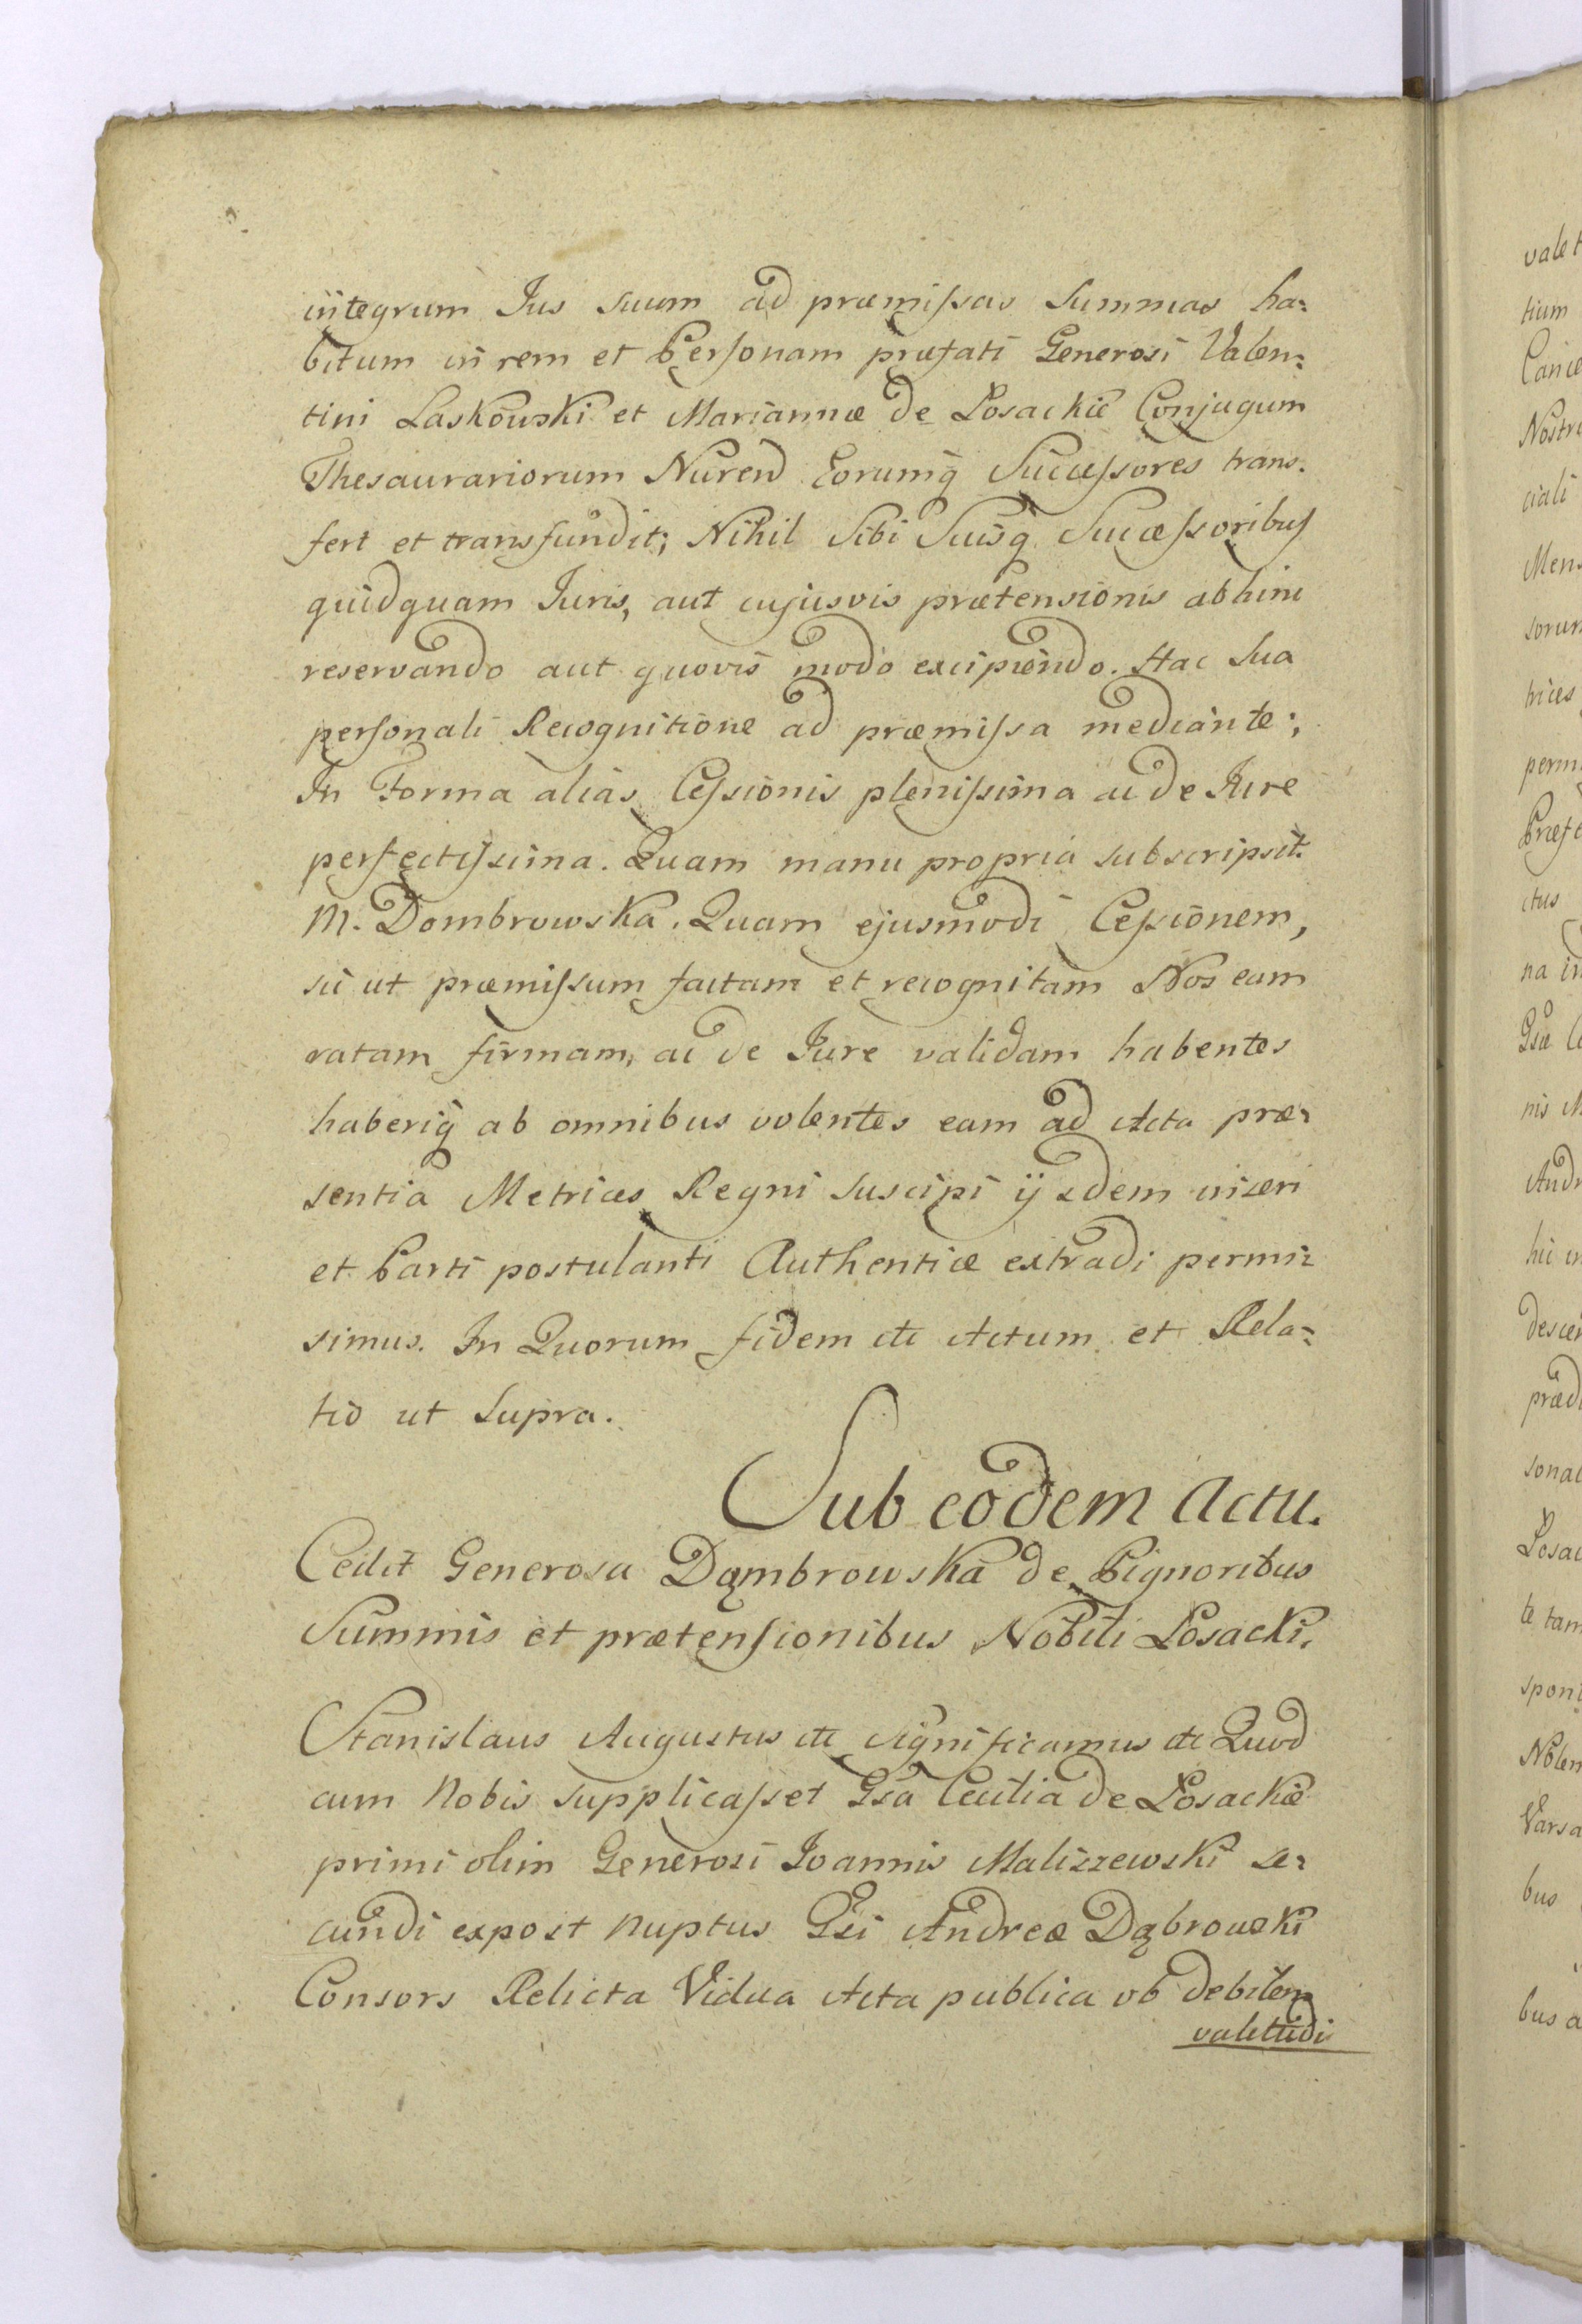 integrum Jus Suum ad præmissas Summas ha=
bitum in rem et Personam præfati Generosi Valen=
tini Laskowski et Mariannæ de Łosackie Conjugum
Thesaurariorum Nuren Eorumq Successores trans.
fert et transfundit; Nihil Sibi Suisq Successoribus
quidquam Juris, aut cujusvis prætensionis abhinc
reservando aut quovis modo excipiendo. Hac Sua
personali Recognitione ad præmissa mediante;
In Forma alias Cessionis plenissima ac de Jure
perfectissima. Quam manu propria subscripsit.
M. Dombrowska. Quam ejusmodi Cessionem,
sic ut præmissum factam et recognitam Nos eam
ratam firmam, ac de Jure validam habentes
haberiq ab omnibus volentes eam ad Acta præ=
sentia Metrices Regni Suscipi ijsdem inseri
et Parti postulanti Authentice extradi permi=
simus. In Quorum fidem etc Actum et Rela=
tio ut Supra.
Sub eodem Actu.
Cedit Generosa Dąmbrowska de Pignoribus
Summis et prætensionibus Nobili Łosacki.
Stanislaus Augustus etc Significamus etc Quod
cum Nobis Supplicasset Gsa Cecilia de Łosackie
primi olim Generosi Joannis Maliszewski se=
cundi expost nuptus Gsi Andreæ Dąbrowski
Consors Relicta Vidua Acta publica ob debilem
valetudi
vale
tium
Nostr
ciali
Mens
sorum
trices
perm
ctus
na in
Gsæ
nis
Andr
hic
descen
præd
sonal
Łosac
te tam
spon
Varsa
bus
bus a